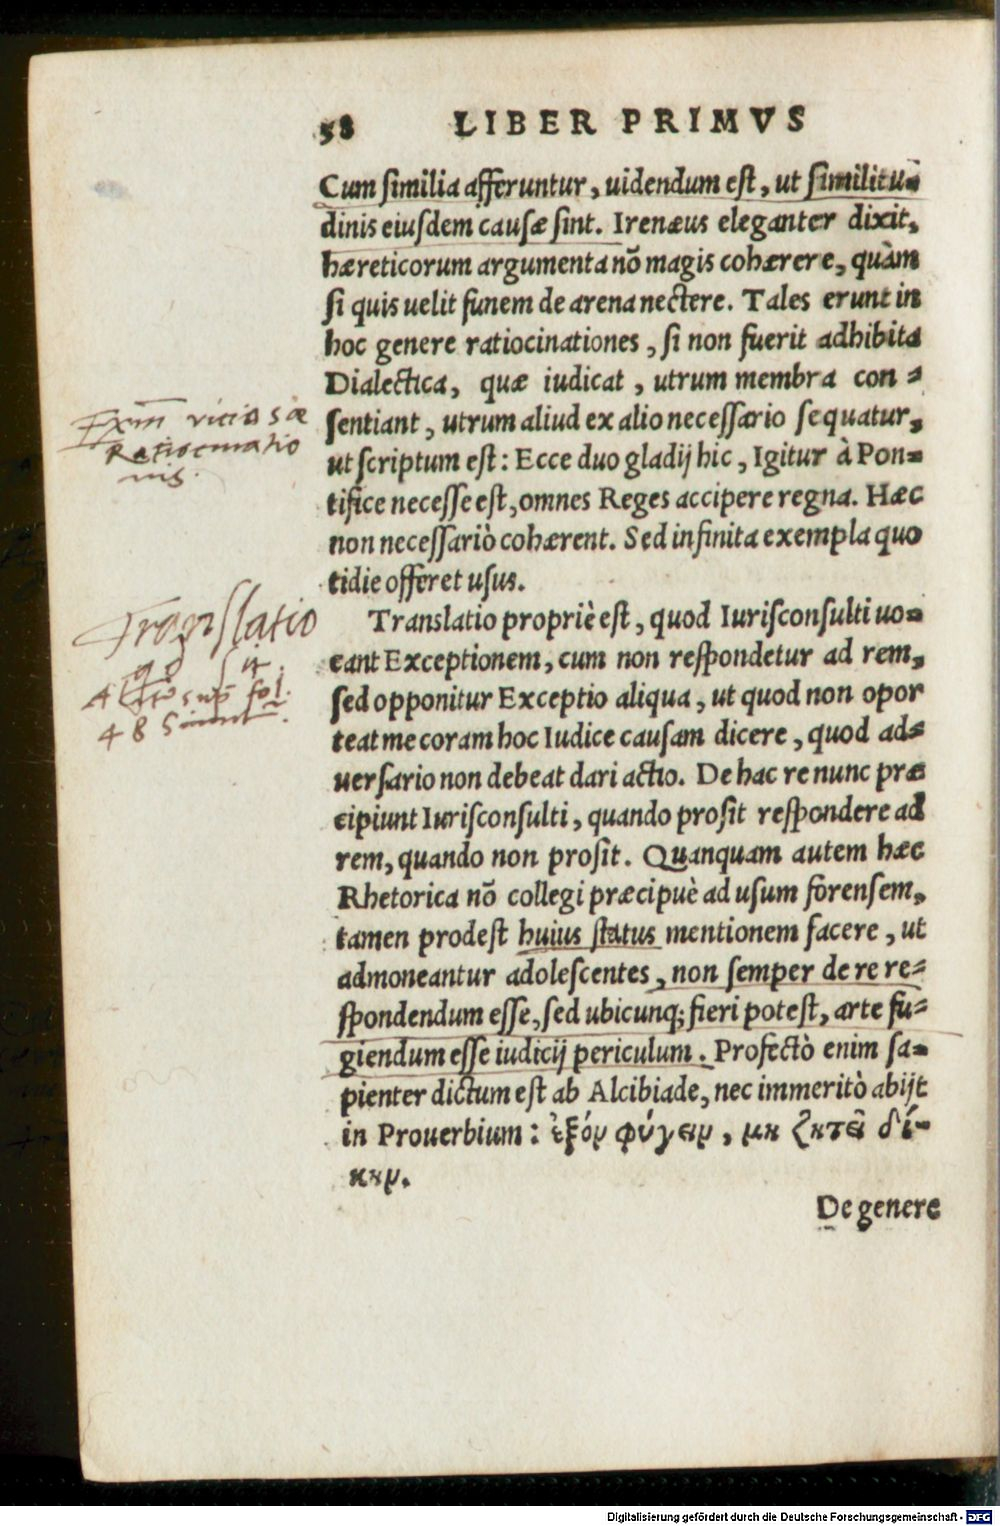 58 LIBER PRIMVS
Cum ſimilia afferuntur, uidendum eſt, ut ſimilitu-
dinis eiuſdem cauſæ ſint. Irenæus eleganter dixit,
hæreticorum argumenta nõ magis cohærere, quàm
ſi quis uelit funem de arena nectere. Tales erunt in
hoc genere ratiocinationes, ſi non fuerit adhibita
Dialectica, quæ iudicat, utrum membra con-
ſentiant, utrum aliud ex alio neceſſario ſequatur,
ut ſcriptum eſt: Ecce duo gladij hic, Igitur à Pon-
tifice neceſſe eſt, omnes Reges accipere regna. Hæc
non neceſſariò cohærent. Sed infinita exempla quo
tidie offeret uſus.
Translatio propriè eſt, quod Iuriſconſulti uo-
cant Exceptionem, cum non reſpondetur ad rem,
ſed opponitur Exceptio aliqua, ut quod non opor
teat me coram hoc Iudice cauſam dicere, quod ad-
uerſario non debeat dari actio. De hac re nunc præ
cipiunt Iuriſconſulti, quando proſit reſpondere ad
rem, quando non proſit. Quanquam autem hæc
Rhetorica nõ collegi præcipuè ad uſum forenſem,
tamen prodeſt huius ſtatus mentionem facere, ut
admoneantur adoleſcentes, non ſemper de re re-
ſpondendum eſſe, ſed ubicunq; fieri poteſt, arte fu-
giendum eſſe iudicij periculum. Profectò enim ſa-
pienter dictum eſt ab Alcibiade, nec immeritò abijt
in Prouerbium: ἐξόν φύγειν, μὴ ζητεῖ δί-
κην.
De genere
Exm̄ vitiosæ
Ratiocinatio
nis.
Translatio
qd ſit.
fol.
48
Digitalisierung gefördert durch die Deutsche Forschungsgemeinschaft - DFG